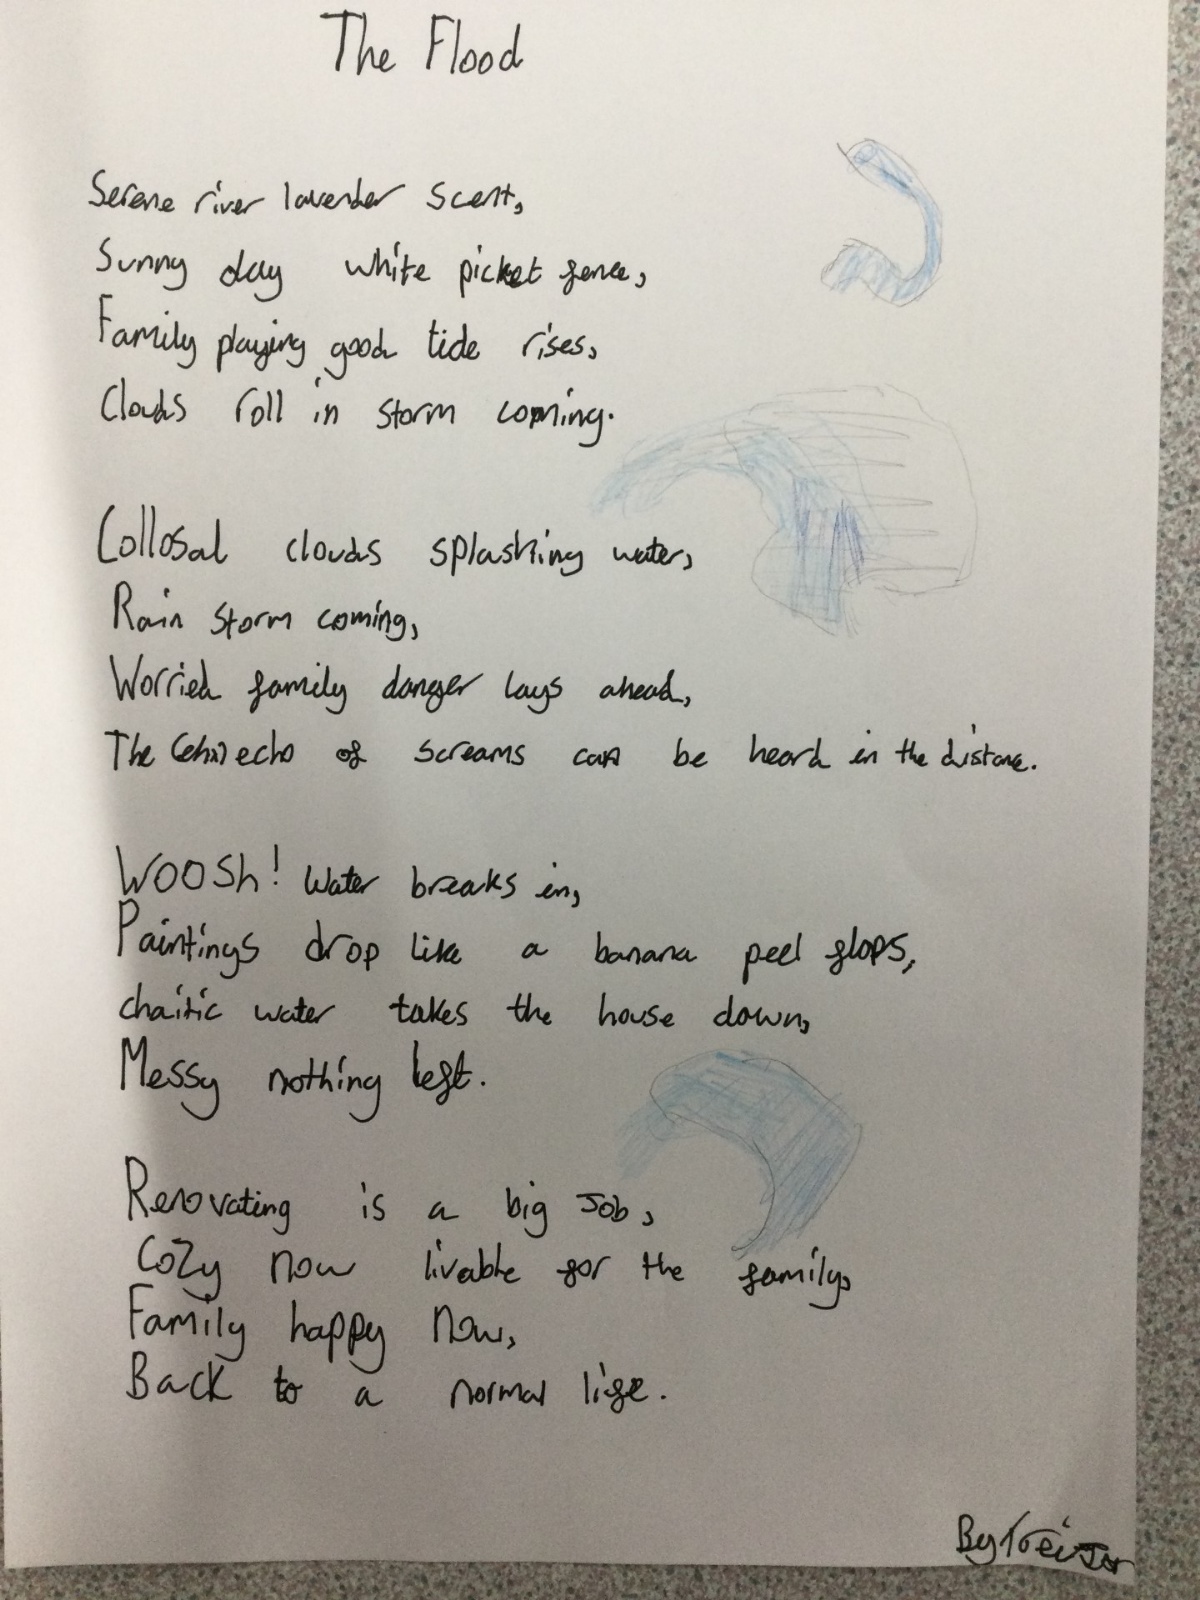 The Flood
Serene river lavender scent,
Sunny day white picket fence,
Family playing good tide rises,
Clouds roll in storm coming.
Collosal clouds splashing water,
Rain storm coming,
Worried family danger lays ahead,
The (eho) echo of screams can be heard in the distance.
WOOSh! Water breaks in,
Paintings drop like a banana peel flops,
chaitic water takes the house down,
Messy nothing left.
Renovating is a big Job,
Cozy now livable for the family,
Family happy now,
Back to a normal life.
By